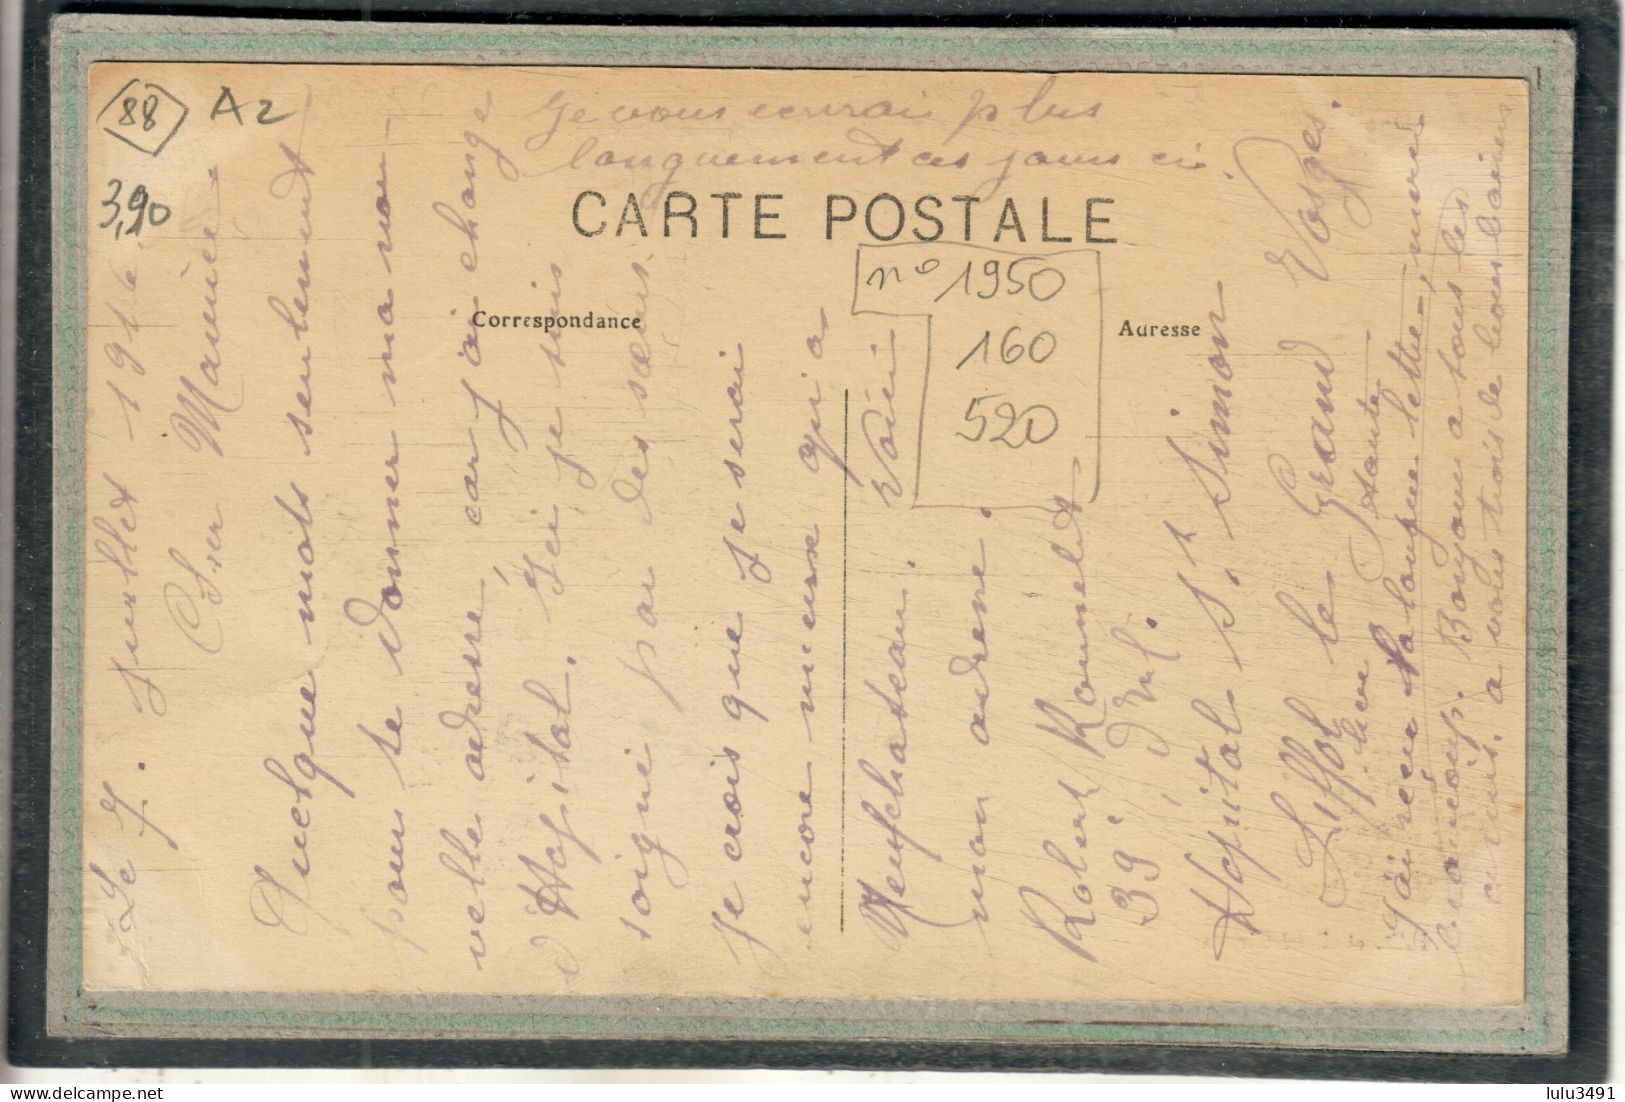 88
A2
3,90
Je vous ecrirai plus
longuement ces jours ci.
CARTE POSTALE
Correspondance
Adresse
n° 1950
160
520
Le 7. juillet 191
Cher Maurice
Quelque mots seulement
pour te donner ma nou-
velle adresse, car j'ai changé
d'Hopital. Ici je suis
soigné par des sœurs.
Je crois que je serai
encore mieux qu'a
Neufchateau. Voici
mon adresse.
Robert
39e
Hopital St. Simon
Liffol le Grand Vosges.
J'ai reçu ta longue lettre, merci
beaucoup. Bonjour a tous les
amis, a vous trois de bons baisers
lulu3491